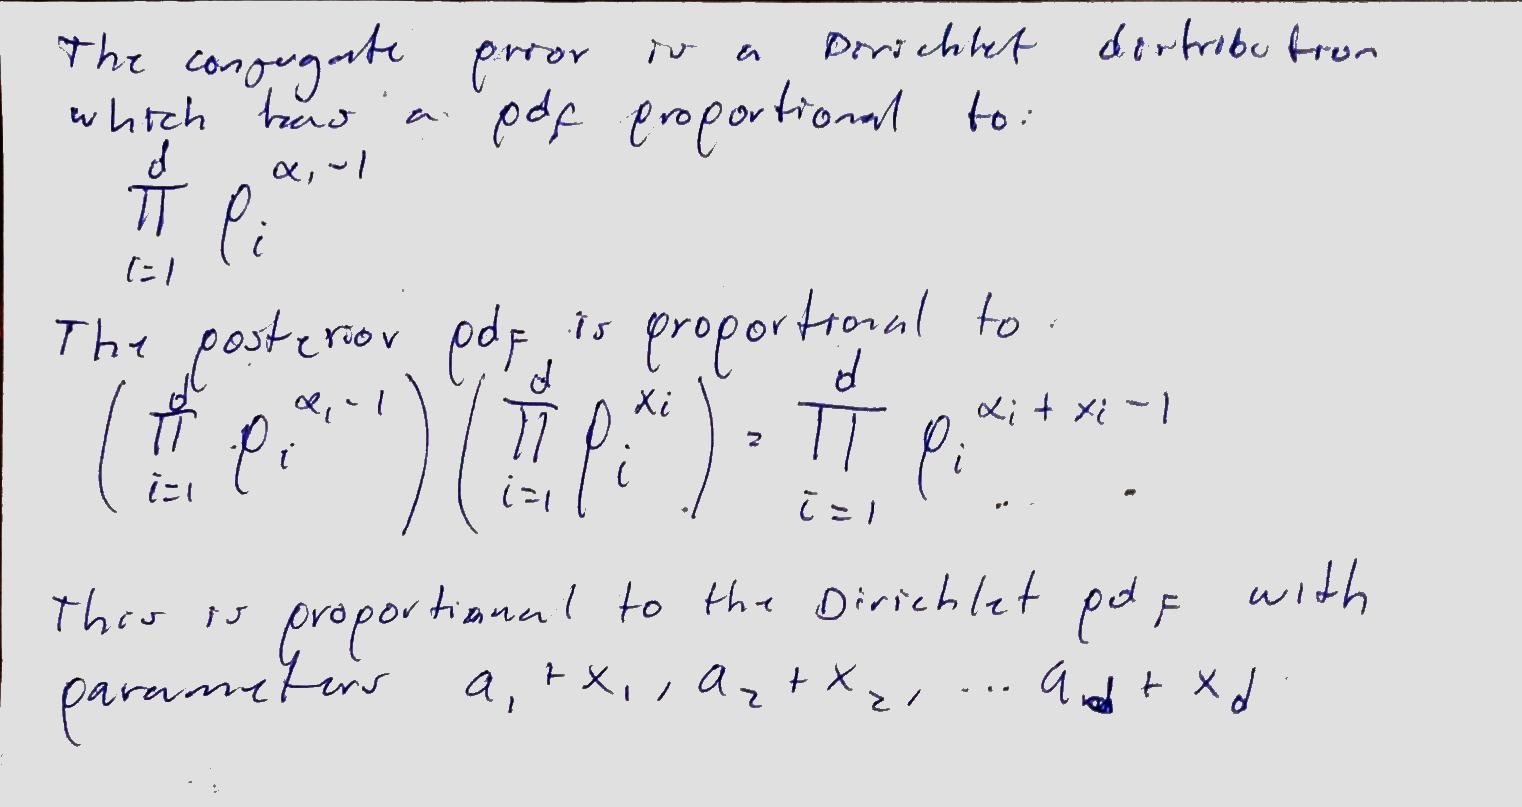 The conjugate prior is a Dirichlet distribution
which has a pdf proportional to:
∏_{i=1}^{d} p_i^{α_i-1}
The posterior pdf is proportional to:
(∏_{i=1}^{d} p_i^{α_i-1}) (∏_{i=1}^{d} p_i^{x_i}) = ∏_{i=1}^{d} p_i^{α_i+x_i-1}
This is proportional to the Dirichlet pdf with
parameters a_1 + x_1, a_2 + x_2, ... a_d + x_d